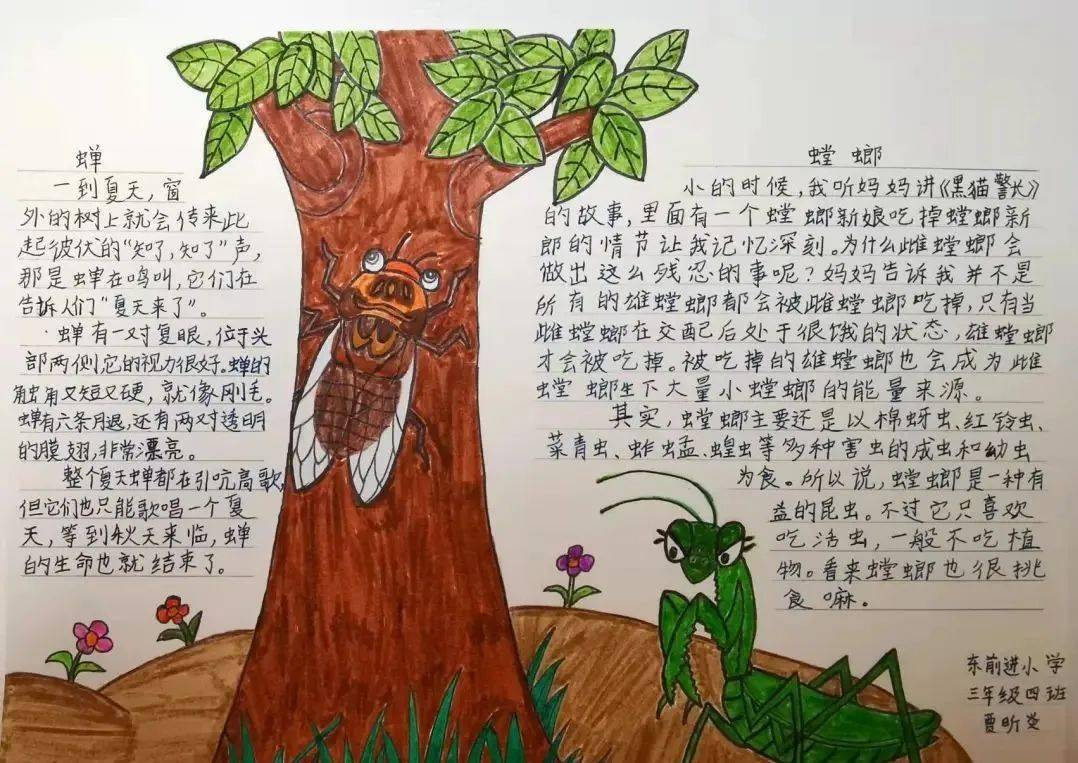 蝉
一到夏天，窗
外的树上就会传来此
起彼伏的“知了，知了”声，
那是蝉在鸣叫，它们在
告诉人们“夏天来了”。
蝉有一对复眼，位于头
部两侧，它的视力很好。蝉的
触角又短又硬，就像刚毛。
蝉有六条腿，还有两对透明
的膜翅，非常漂亮。
整个夏天蝉都在引吭高歌，
但它们也只能歌唱一个夏
天，等到秋天来临，蝉
的生命也就结束了。
螳螂
小的时候，我听妈妈讲《黑猫警长》
的故事，里面有一个螳螂新娘吃掉螳螂新
郎的情节让我记忆深刻。为什么雌螳螂会
做出这么残忍的事呢？妈妈告诉我并不是
所有的雄螳螂都会被雌螳螂吃掉，只有当
雌螳螂在交配后处于很饿的状态，雄螳螂
才会被吃掉。被吃掉的雄螳螂也会成为雌
螳螂生下大量小螳螂的能量来源。
其实，螳螂主要还是以棉蚜虫、红铃虫、
菜青虫、蚱蜢、蝗虫等多种害虫的成虫和幼虫
为食。所以说，螳螂是一种有
益的昆虫。不过它只喜欢
吃活虫，一般不吃植
物。看来螳螂也很挑
食嘛。
东前进小学
三年级四班
贾昕炎